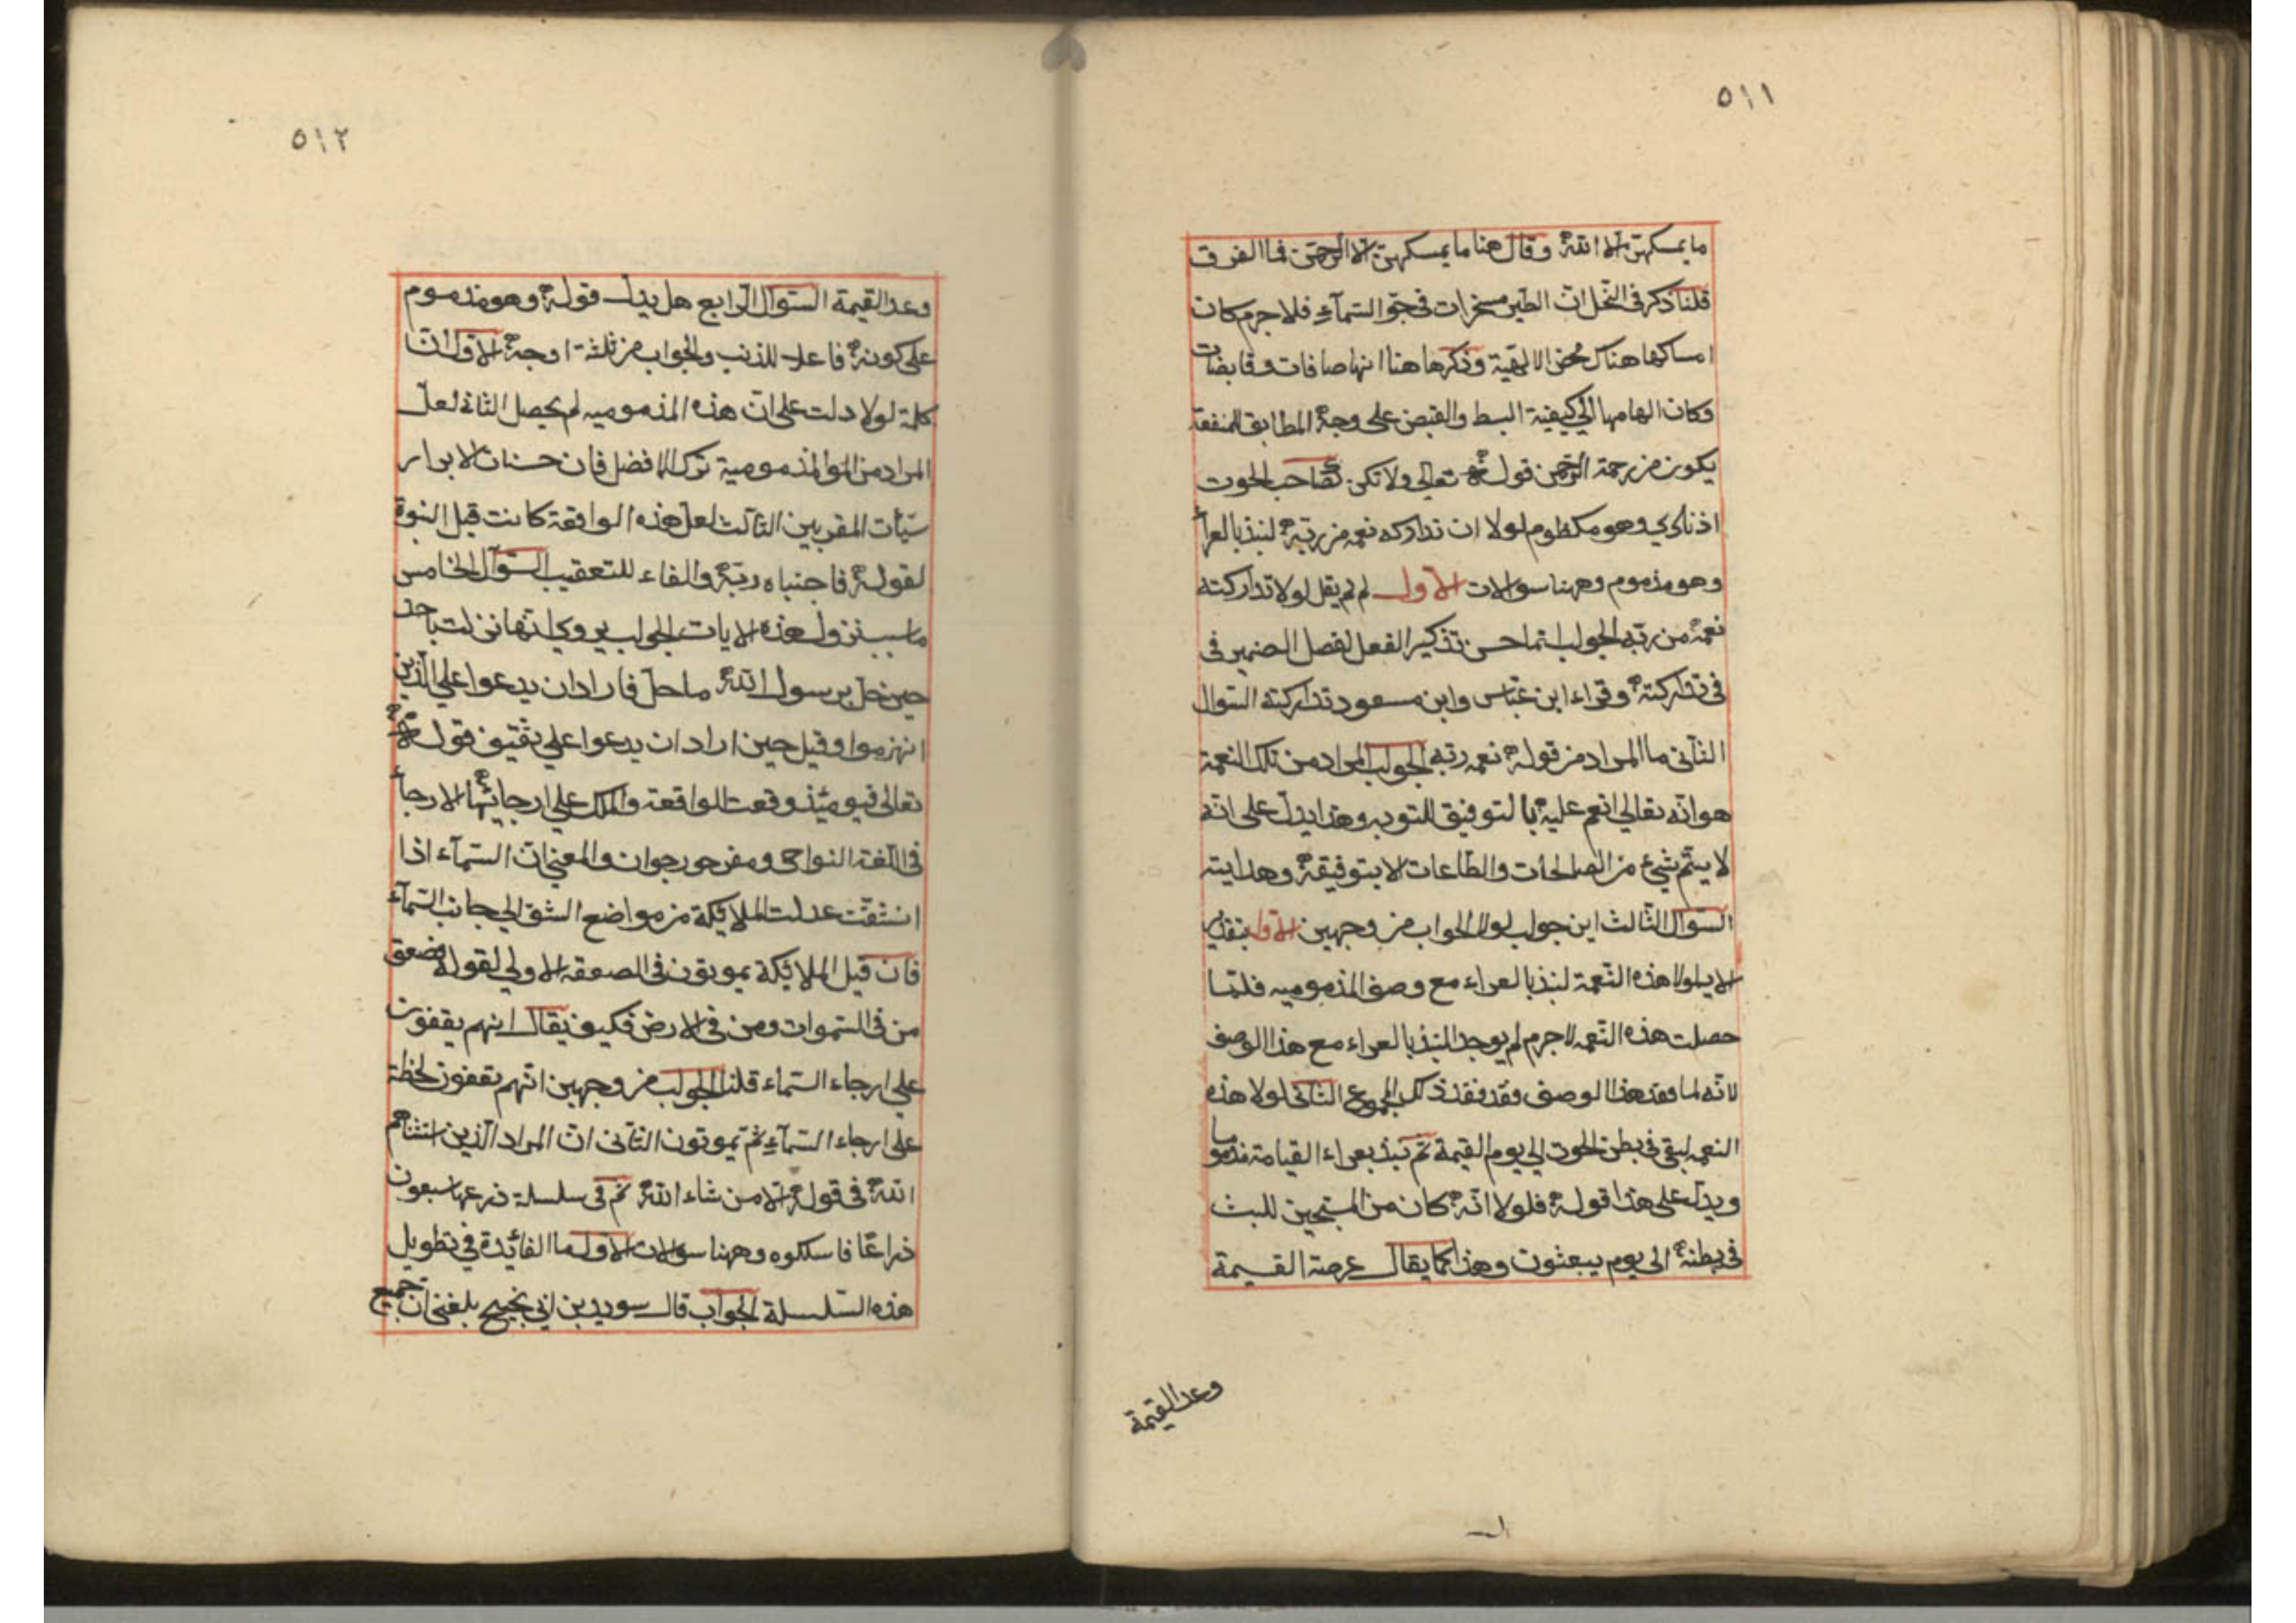 ٥١١
ما يمسكهن الا الله وقال هنا ما يمسكهن الا الرحمن فما الفرق
قلنا ذكر في النحل ان الطير مسخرات في جو السمآء فلا جرم كان
امساكها هناك محض الالهية وذكرها هنا انها صافات وقابضات
وكان الهامها الي كيفية البسط والقبض على وجه المطابق للمنفعة
يكون من رحمة الرحمن قوله تعالى ولا تكن كصاحب الحوت
اذ نادي وهو مكظوم لولا ان تداركه نعمه من ربه لنبذ بالعرآء
وهو مذموم وههنا سوالات الاول لم لم يقل لولا تداركته
نعمة من ربه الجواب انما حسن تذكير الفعل لفصل الضمير في
في تداركته وقراء ابن عباس وابن مسعود تداركته السوال
الثاني ما المراد من قوله نعمه ربه الجواب المراد من تلك النعمة
هو انه تعالي انعم عليه بالتوفيق للتوبه وهذا يدل على انه
لا يتم شيء من الصالحات والطاعات الا بتوفيقه وهدايته
السوال الثالث اين جواب لولا الجواب من وجهين الاول بتقدير
الايه لولا هذه النعمة لنبذ بالعراء مع وصف المذموميه فلما
حصلت هذه النعمه لا جرم لم يوجد النبذ بالعراء مع هذا الوصف
لانه لما فقد هذا الوصف فقد فقد ذلك المجموع الثاني لولا هذه
النعمه لبقي في بطن الحوت الي يوم القيمة ثم نبذ بعراء القيامة مذموما
ويدل على هذا قوله فلولا انه كان من المسبحين للبث
في بطنه الى يوم يبعثون وهذا كما يقال عرصة القيمة
وعد القيمة
٥١٢
وعد القيمة السوال الرابع هل يدل قوله وهو مذموم
على كونه فاعلا للذنب والجواب من ثلثة اوجه الاول ان
كلمة لولا دلت على ان هذه المذموميه لم يحصل الثاني لعل
المراد من المذمومية ترك الافضل فان حسنات الابرار
سيئات المقربين الثالث لعل هذه الواقعة كانت قبل النبوة
لقوله فاجتباه ربه والفاء للتعقيب السوال الخامس
ما سبب نزول هذه الايات الجواب يروي انها نزلت باحد
حين حل برسول الله ما حل فاراد ان يدعوا علي الذين
انهزموا وقيل حين اراد ان يدعوا علي ثقيف قوله
تعالى فيومئذ وقعت الواقعة والملك علي ارجائها الارجآء
في اللغة النواحي ومفرده رجوان والمعني ان السمآء اذا
انشقت عدلت الملائكة من مواضع الشق الي جانب السمآء
فان قيل الملائكة يموتون في الصعقه الاولي لقوله فصعق
من في السموات ومن في الارض فكيف يقال انهم يقفون
علي ارجاء السماء قلنا الجواب من وجهين انهم يقفون لحظة
علي ارجاء السمآء ثم يموتون الثاني ان المراد الذين استثناهم
الله في قوله الا من شاء الله ثم في سلسلة ذرعها سبعون
ذراعا فاسلكوه وههنا سوالات الاول ما الفائدة في تطويل
هذه السلسلة الجواب قال سويد بن ابي نجيح بلغني ان جميع